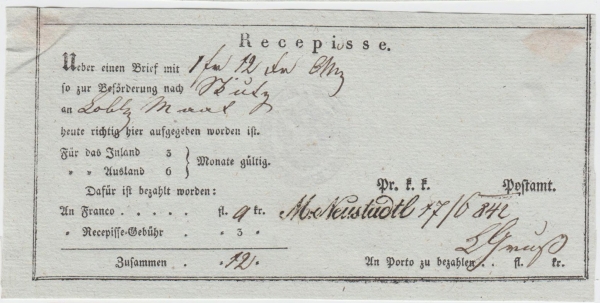 Recepisse.
Ueber einen Brief mit 1 fr 12 kr CMz
so zur Beförderung nach
an Löbl: Magt
heute richtig hier aufgegeben worden ist.
Für das Inland 3
„ „ Ausland 6 } Monate gültig.
Dafür ist bezahlt worden: Pr. k. k. Postamt.
An Franco . . . . . fl. 9 kr. M: Neustadtl 17/6 842
„ Recepisse-Gebühr . „ 3 „
Zusammen . „ 12 „ An Porto zu bezahlen . . fl. kr.